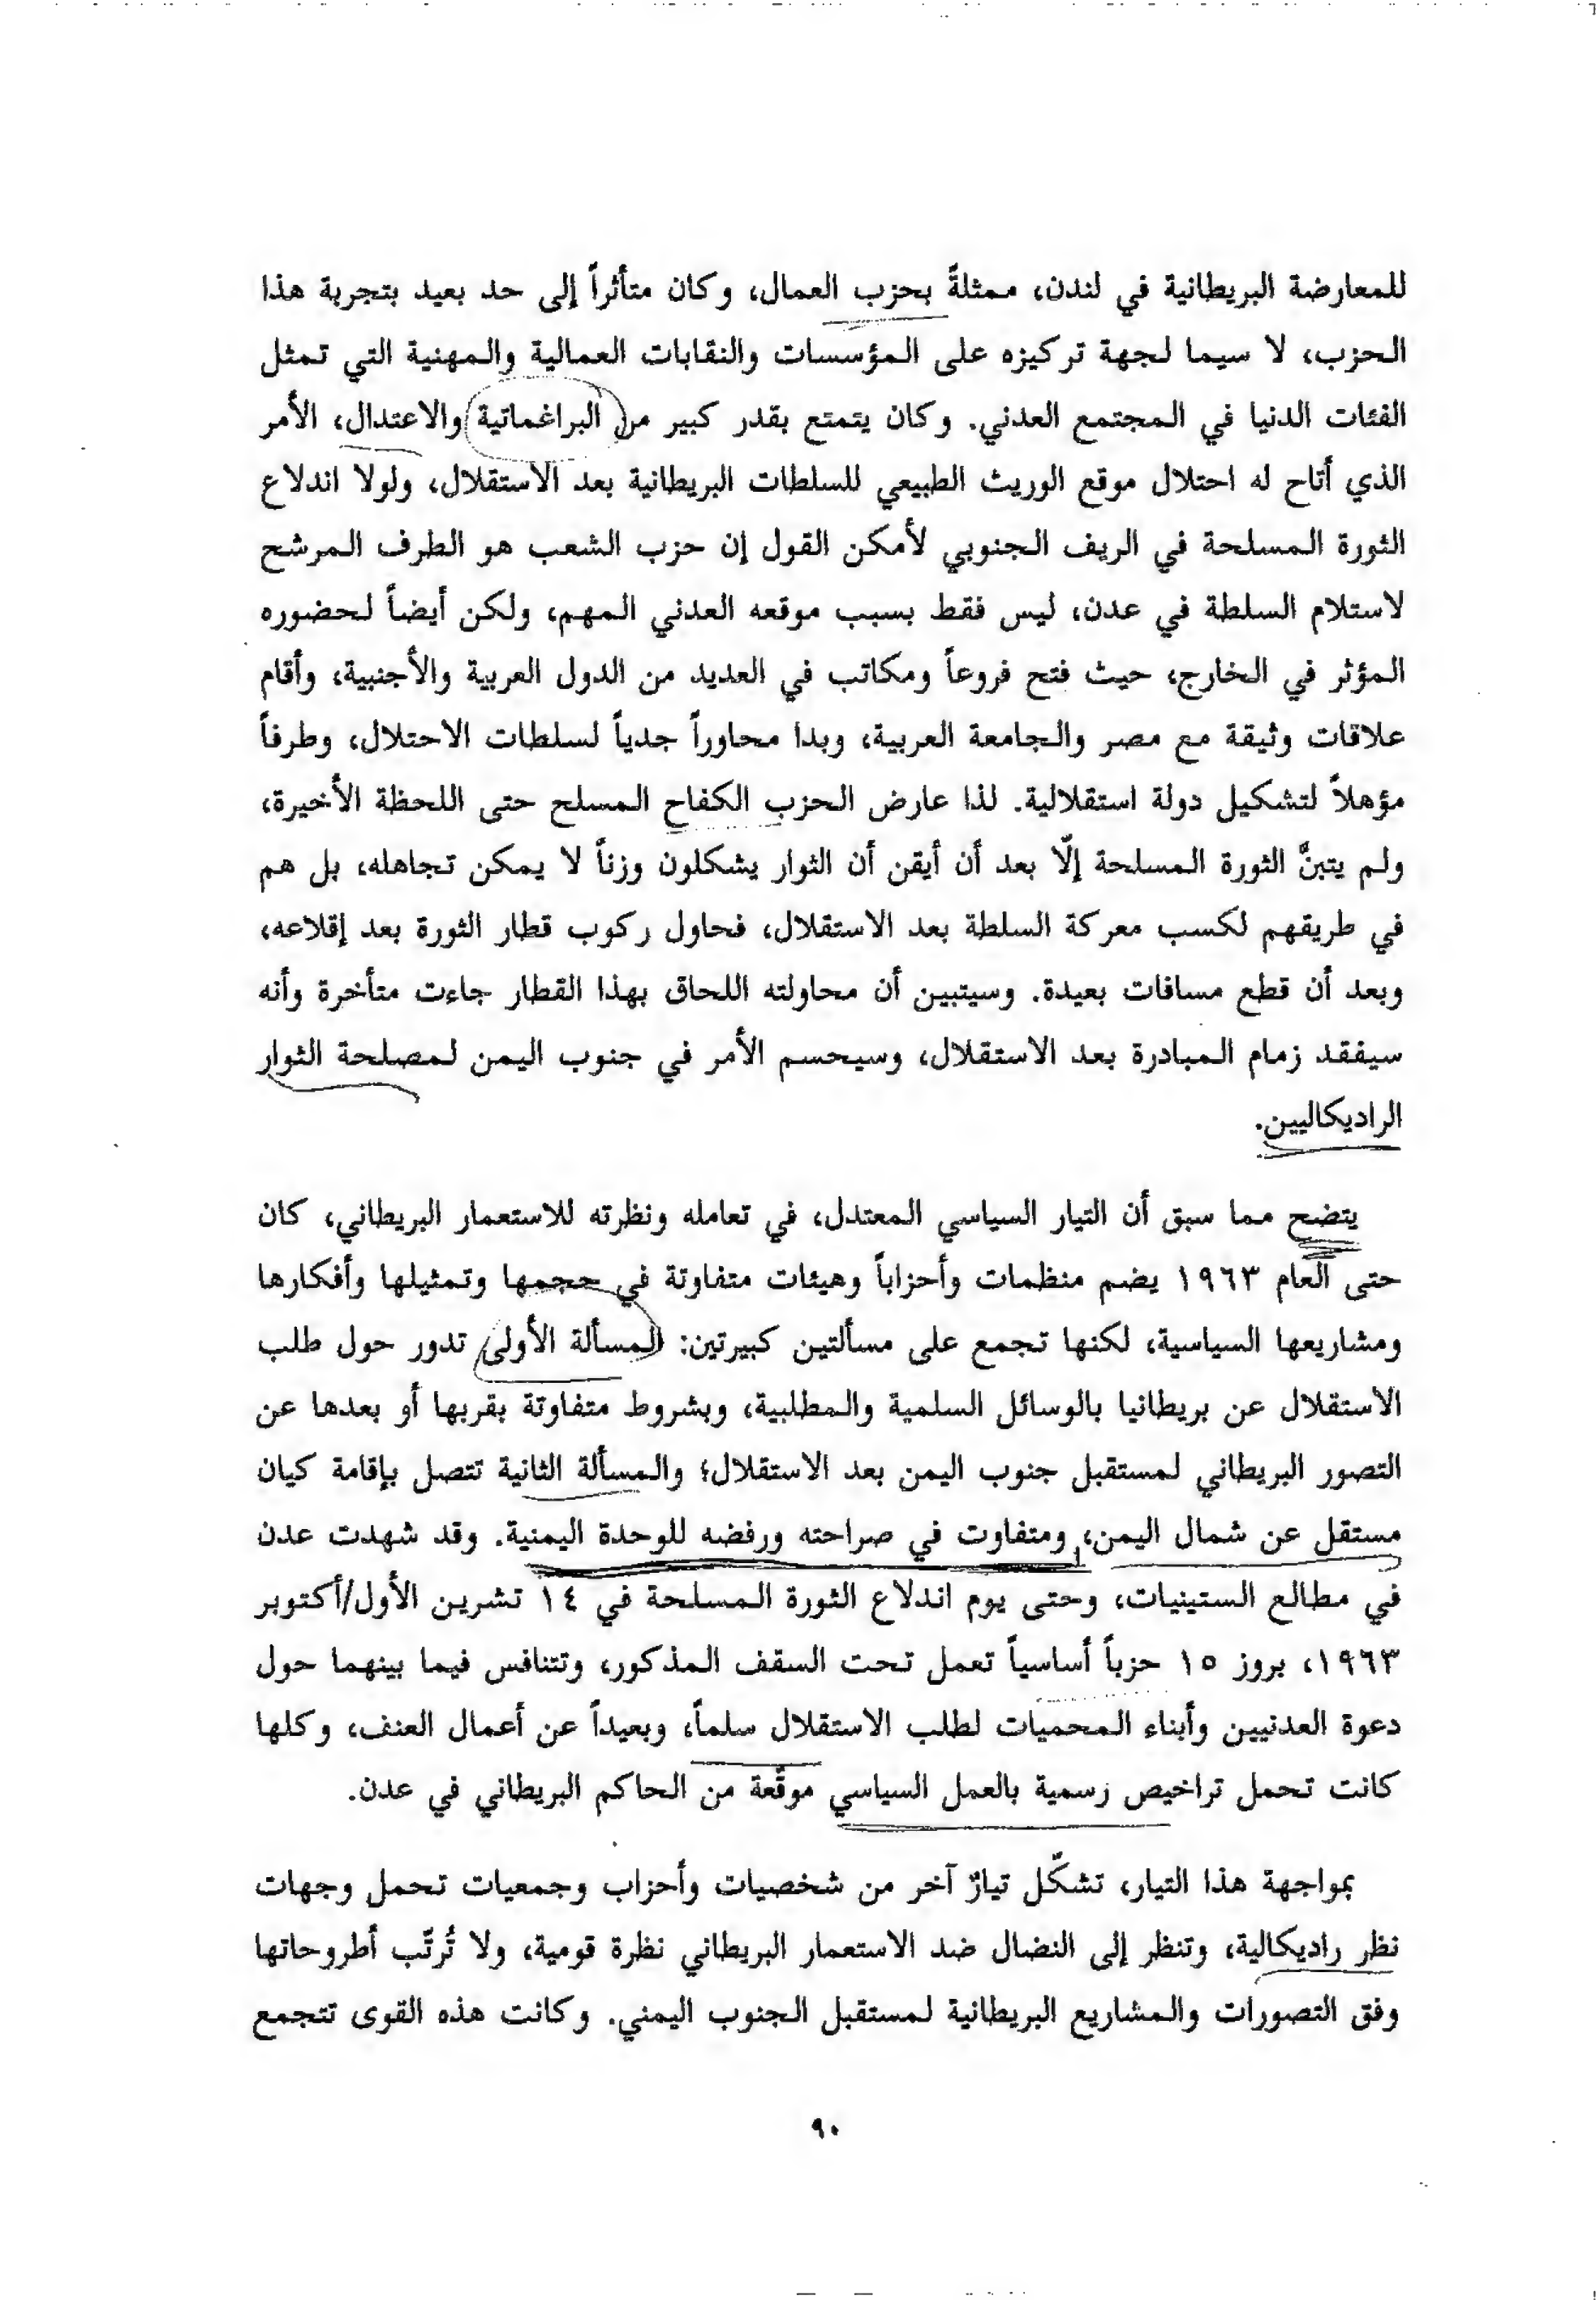 للمعارضة البريطانية في لندن، ممثلةً بحزب العمال، وكان متأثراً إلى حد بعيد بتجربة هذا
الحزب، لا سيما لجهة تركيزه على المؤسسات والنقابات العمالية والمهنية التي تمثل
الفئات الدنيا في المجتمع العدني. وكان يتمتع بقدر كبير من البراغماتية والاعتدال، الأمر
الذي أتاح له احتلال موقع الوريث الطبيعي للسلطات البريطانية بعد الاستقلال، ولولا اندلاع
الثورة المسلحة في الريف الجنوبي لأمكن القول إن حزب الشعب هو الطرف المرشح
لاستلام السلطة في عدن، ليس فقط بسبب موقعه العدني المهم، ولكن أيضاً لحضوره
المؤثر في الخارج، حيث فتح فروعاً ومكاتب في العديد من الدول العربية والأجنبية، وأقام
علاقات وثيقة مع مصر والجامعة العربية، وبدا محاوراً جدياً لسلطات الاحتلال، وطرفاً
مؤهلاً لتشكيل دولة استقلالية. لذا عارض الحزب الكفاح المسلح حتى اللحظة الأخيرة،
ولم يتبنَّ الثورة المسلحة إلّا بعد أن أيقن أن الثوار يشكلون وزناً لا يمكن تجاهله، بل هم
في طريقهم لكسب معركة السلطة بعد الاستقلال، فحاول ركوب قطار الثورة بعد إقلاعه،
وبعد أن قطع مسافات بعيدة. وسيتبين أن محاولته اللحاق بهذا القطار جاءت متأخرة وأنه
سيفقد زمام المبادرة بعد الاستقلال، وسيحسم الأمر في جنوب اليمن لمصلحة الثوار
الراديكاليين.
يتضح مما سبق أن التيار السياسي المعتدل، في تعامله ونظرته للاستعمار البريطاني، كان
حتى العام ١٩٦٣ يضم منظمات وأحزاباً وهيئات متفاوتة في حجمها وتمثيلها وأفكارها
ومشاريعها السياسية، لكنها تجمع على مسألتين كبيرتين: المسألة الأولى تدور حول طلب
الاستقلال عن بريطانيا بالوسائل السلمية والمطلبية، وبشروط متفاوتة بقربها أو بعدها عن
التصور البريطاني لمستقبل جنوب اليمن بعد الاستقلال؛ والمسألة الثانية تتصل بإقامة كيان
مستقل عن شمال اليمن، ومتفاوت في صراحته ورفضه للوحدة اليمنية. وقد شهدت عدن
في مطالع الستينيات، وحتى يوم اندلاع الثورة المسلحة في ١٤ تشرين الأول/أكتوبر
١٩٦٣، بروز ١٥ حزباً أساسياً تعمل تحت السقف المذكور، وتتنافس فيما بينهما حول
دعوة العدنيين وأبناء المحميات لطلب الاستقلال سلماً، وبعيداً عن أعمال العنف، وكلها
كانت تحمل تراخيص رسمية بالعمل السياسي موقّعة من الحاكم البريطاني في عدن.
بمواجهة هذا التيار، تشكّل تيارٌ آخر من شخصيات وأحزاب وجمعيات تحمل وجهات
نظر راديكالية، وتنظر إلى النضال ضد الاستعمار البريطاني نظرة قومية، ولا تُرتّب أطروحاتها
وفق التصورات والمشاريع البريطانية لمستقبل الجنوب اليمني. وكانت هذه القوى تتجمع
٩٠